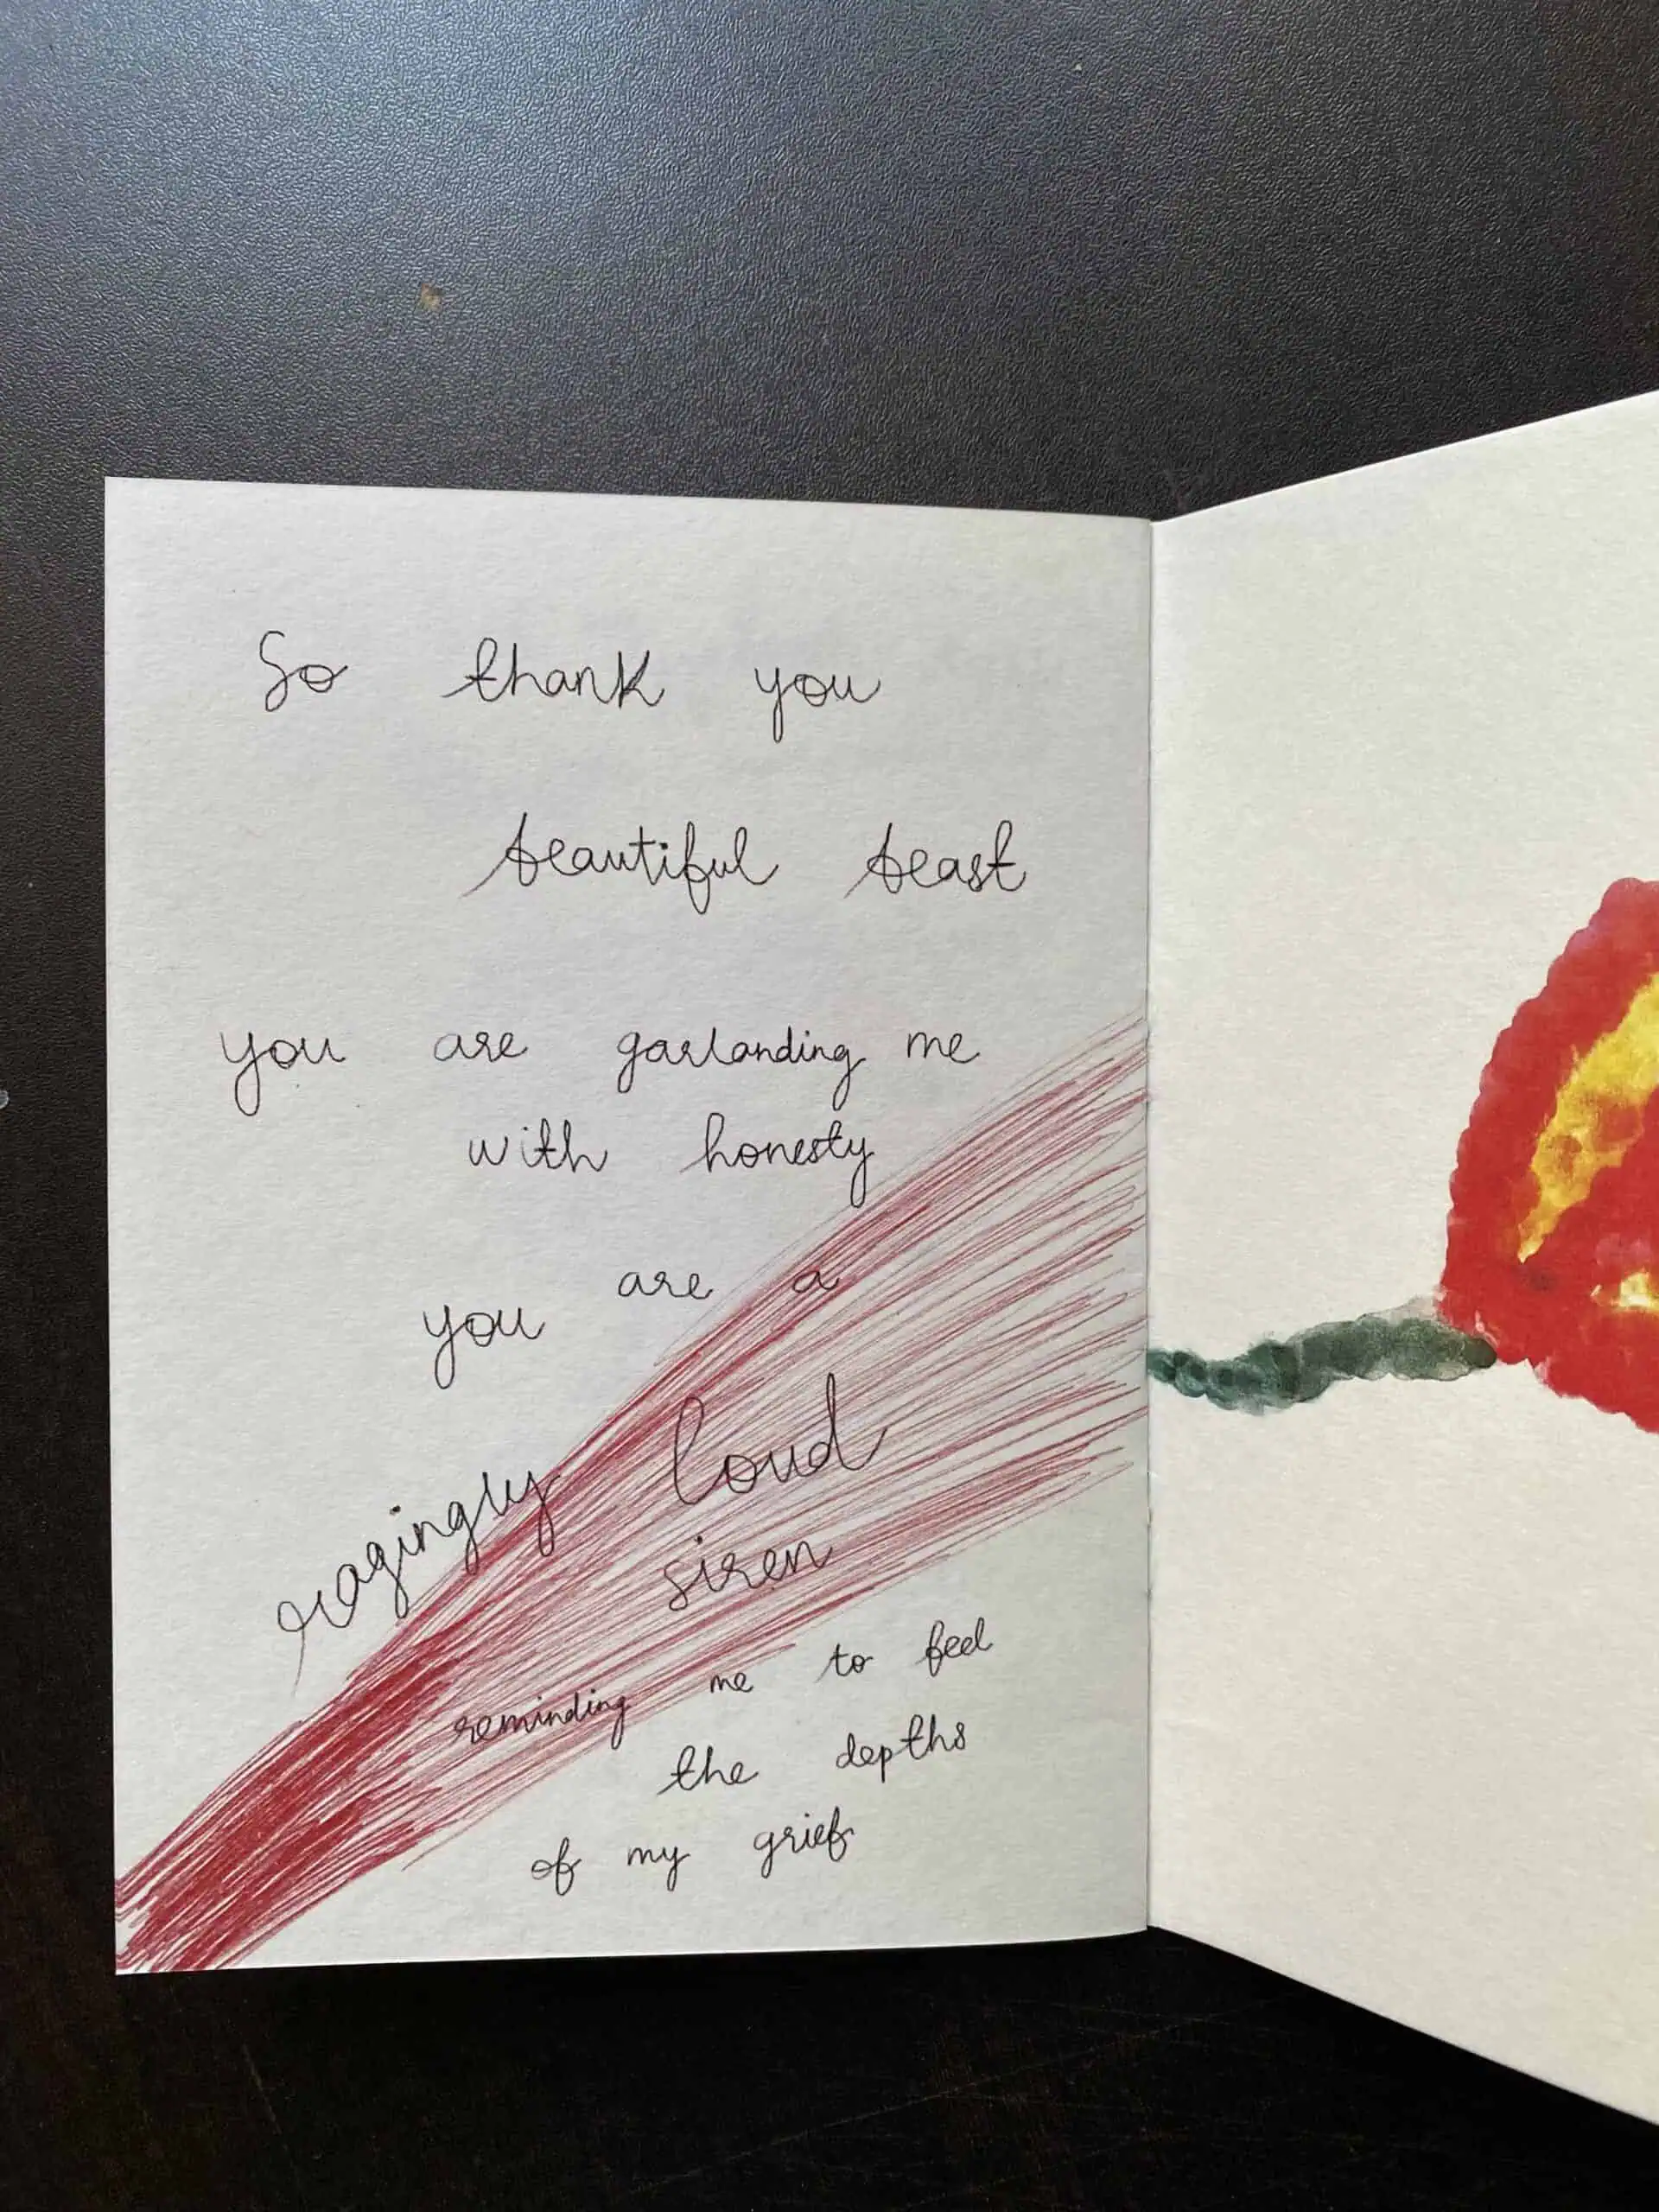 So thank you
beautiful beast
you are garlanding me
with honesty
you are a
ragingly loud
siren
reminding me to feel
the depths
of my grief